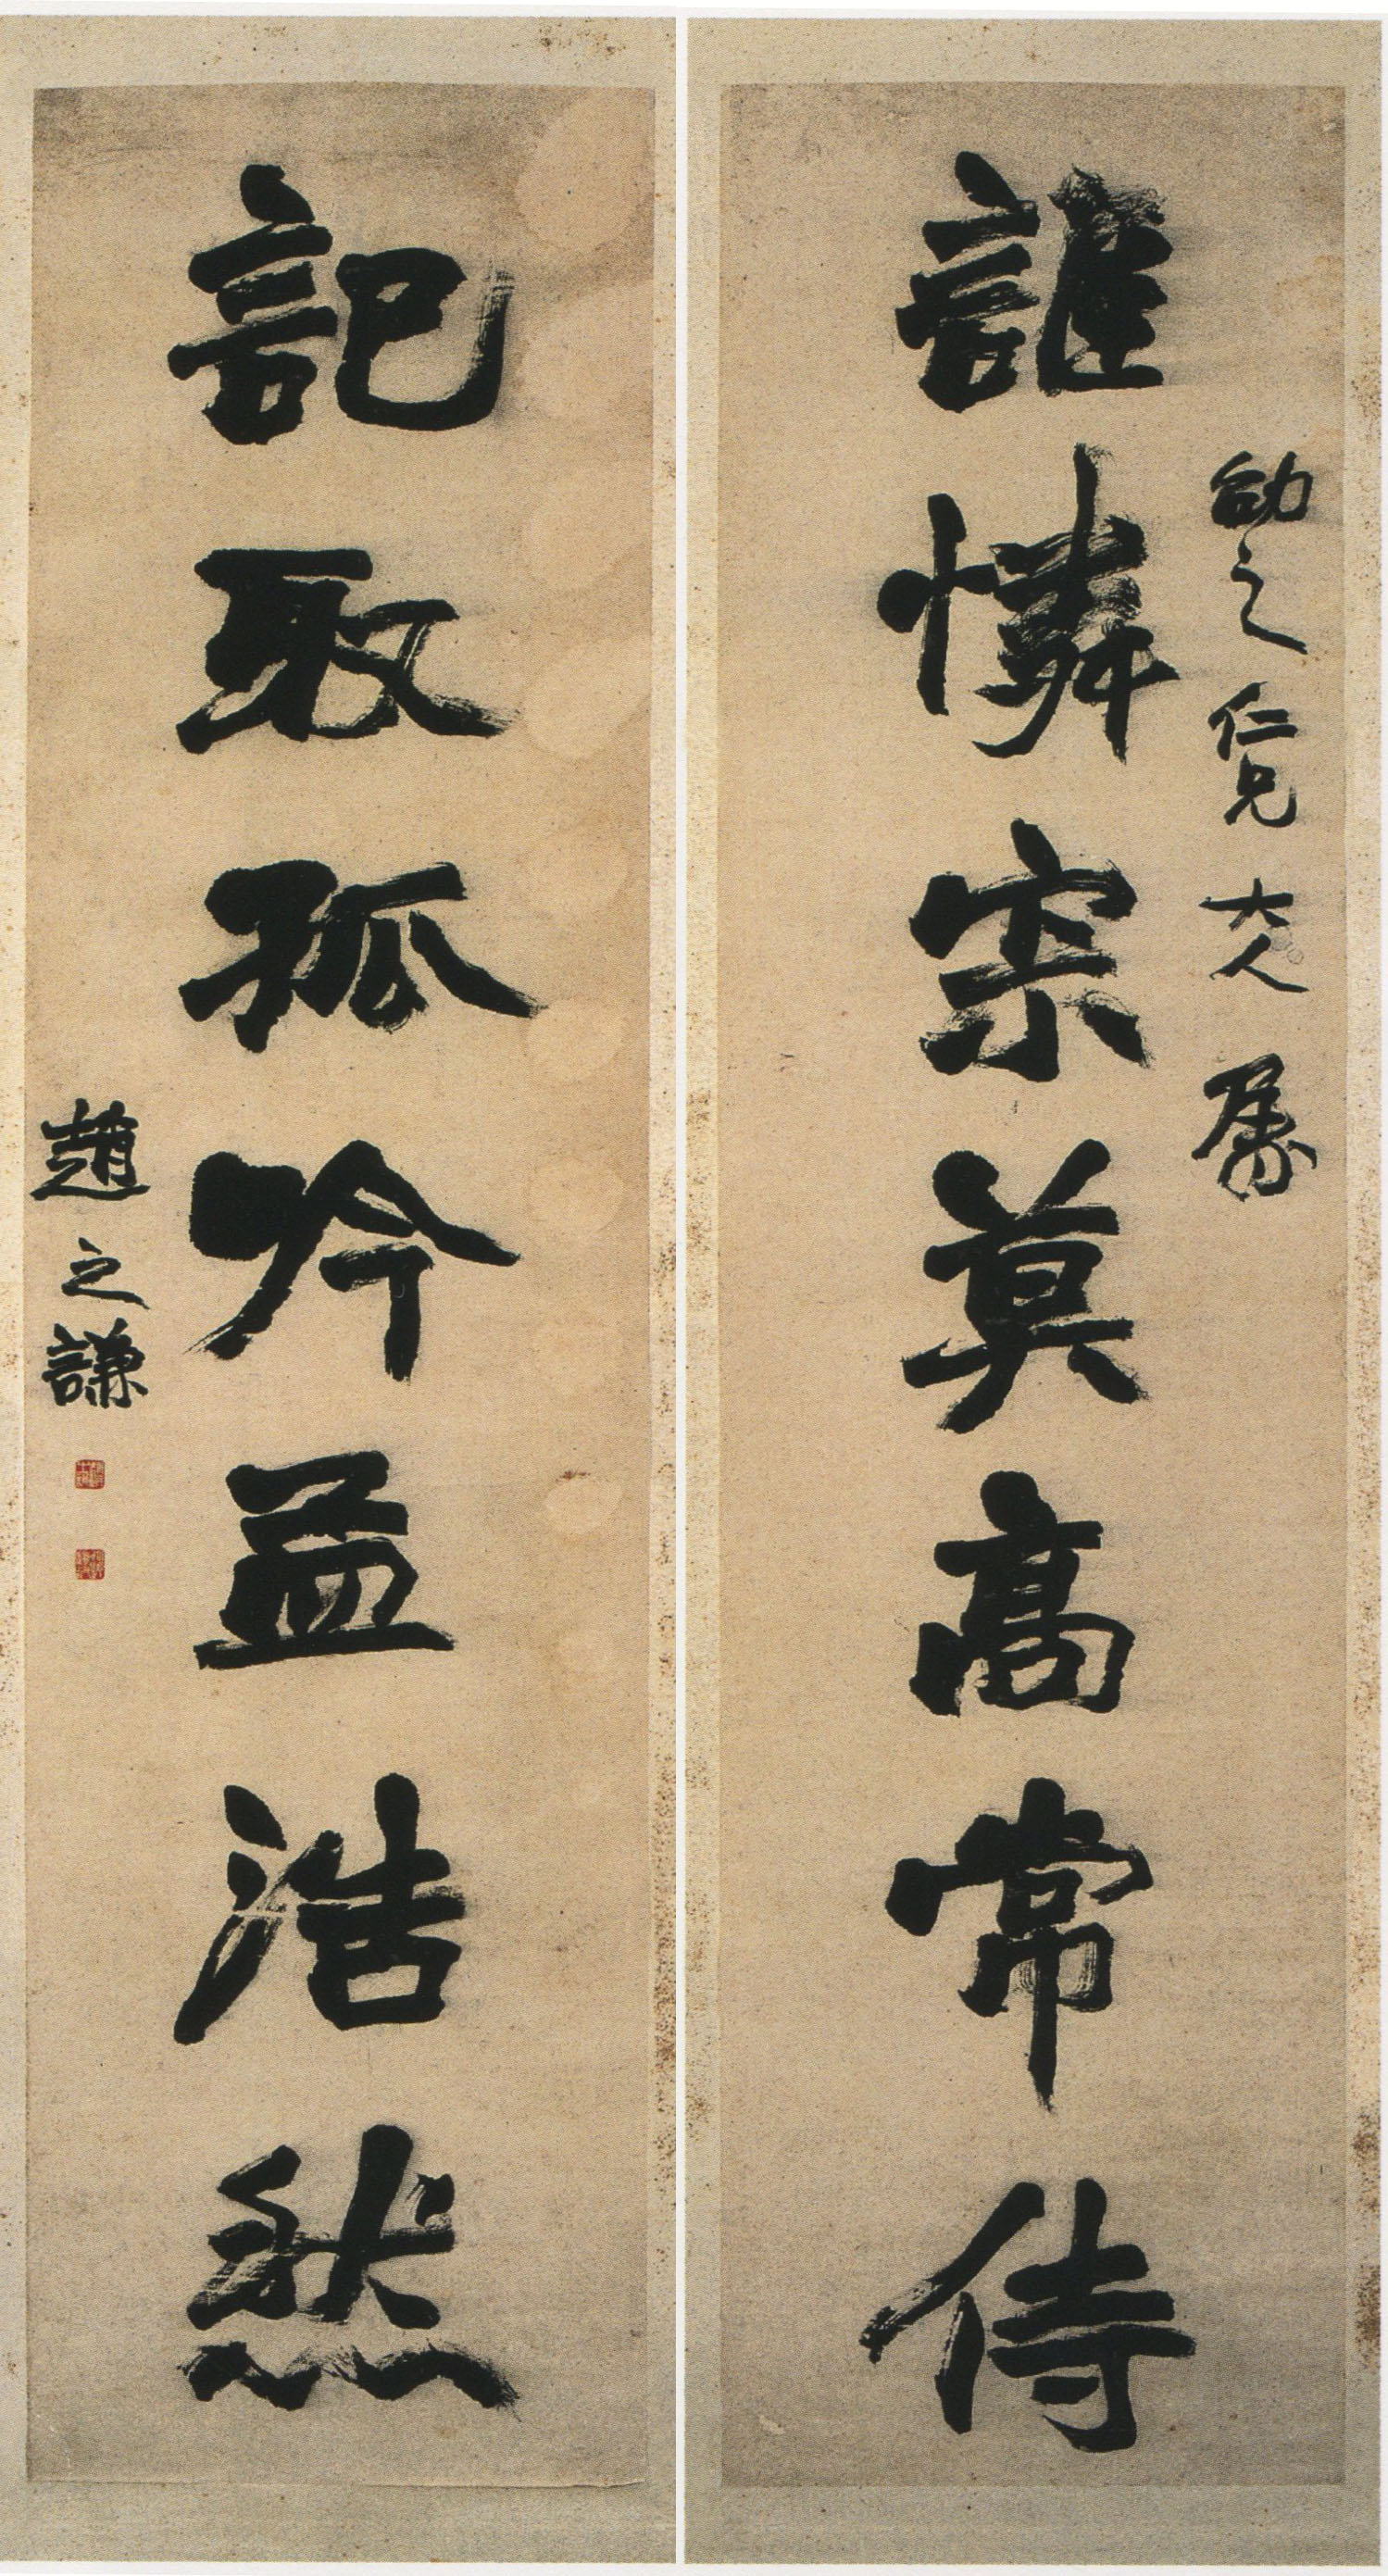 幼之仁兄大人屬
誰憐寂莫高常侍
記取孤吟孟浩然
趙之謙